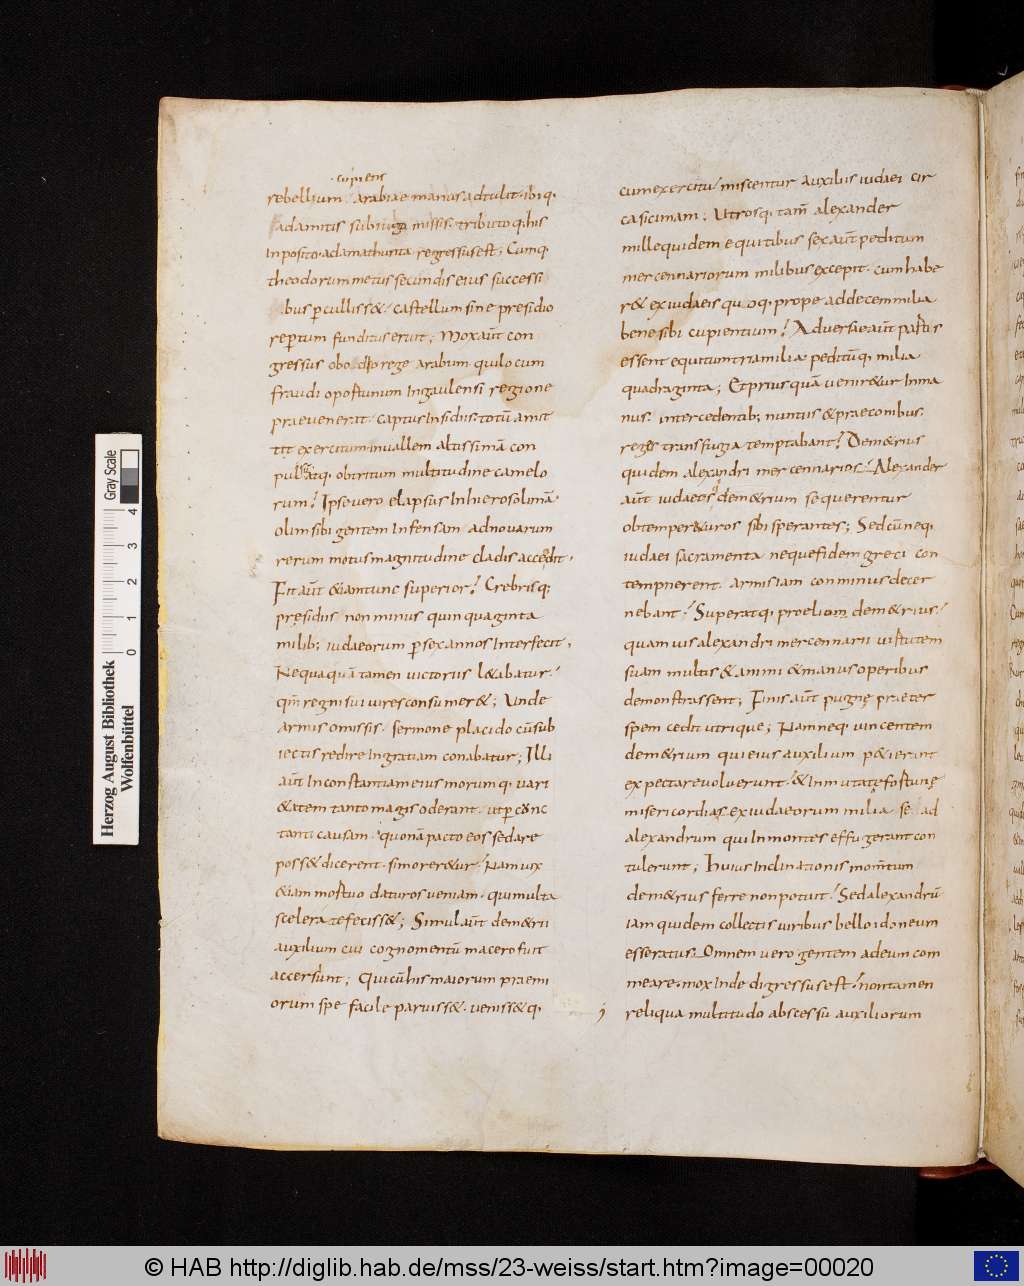 cupiens
rebellium. arabiae manus adtulit. ibiq.
adamitis subiuga missis. tributoq; his
Inposito adamathunta regressus est; Cumq.
theodorum metus secundis eius successi
bus pculliss&. castellum sine presidio
repertum funditus eruit; Mox aut con
gressus obodo rege arabum qui locum
fraudi oportunum Ingaulensi regione
praevenerat. captus Insidiis. totū amit
tit exercitum. Inuallem altissimā con
pulsū atq. obtritum multitudine camelo
rum. Ipse vero elapsus In hierosolimā
olim sibi gentem Infensam ad novarum
rerum motus magnitudine cladis accendit.
Fit aut &iam tunc superior. Crebrisq;
presidiis non minus quinquaginta
milib; iudaeorum p sex annos Interfecit.
Nequaquā tamen victoriis l&abatur.
qm regni sui vires consumer&; Unde
armis omissis. sermone placido cū sub
iectis redire Ingratiam conabatur; Illi
aūt Inconstantiam eius morumq. vari
&atem tanto magis oderant. ut pcūnc
tanti causam. quonā pacto eos sedare
poss& dicerent. si morer&ur. Nam vix
&iam mortuo daturos veniam. qui multa
scelera te feciss&; Simul aūt dem&rii
auxilium cui cognomentū macero fuit
accersiunt; Qui cū his maiorum praemi
orum spe facile paruiss&. veniss&q.
cum exercitu miscentur auxiliis iudaei cir
ca sicimam; Utrosq. tam alexander
mille quidem equitibus sex aūt peditum
mercennariorum milibus excepit. cum habe
r& ex iudaeis quoq. prope ad decem milia
bene sibi cupientium. Adversae aūt partis
essent equitum tria milia peditūq. milia
quadraginta; Et prius quā venir&ur Inma
nus. intercedentib; nuntiis & praeconibus.
reges transfugia temptabant. Dem&rius
quidem alexandri mercennarios. Alexander
aūt iudaeos dem&rium sequerentur
obtemper&uros sibi sperantes; Sed cū neq.
iudaei sacramenta neque fidem greci con
tempnerent. armis iam comminus decer
nebant. Superatq. proelio dem&rius.
quamvis alexandri mercennarii virtutem
suam multis & animi & manus operibus
demonstrassent; Finis aūt pugnę praeter
spem cedit utrique; Nam neq. vincentem
dem&rium qui eius auxilium p&ierant
expectare voluerunt. & Inmutatę fortunę
misericordia. ex iudaeorum milia se ad
alexandrum qui In montes effugerant con
tulerunt; Huius Inclinationis momtum
dem&rius ferre non potuit. Sed alexandrū
Iam quidem collectis viribus bello idoneum
esse ratus. Omnem vero gentem ad eum com
meare. mox Inde digressus est. non tamen
reliqua multitudo abscessu auxiliorum
Gray Scale
0 1 2 3 4
Herzog August Bibliothek
Wolfenbüttel
© HAB http://diglib.hab.de/mss/23-weiss/start.htm?image=00020